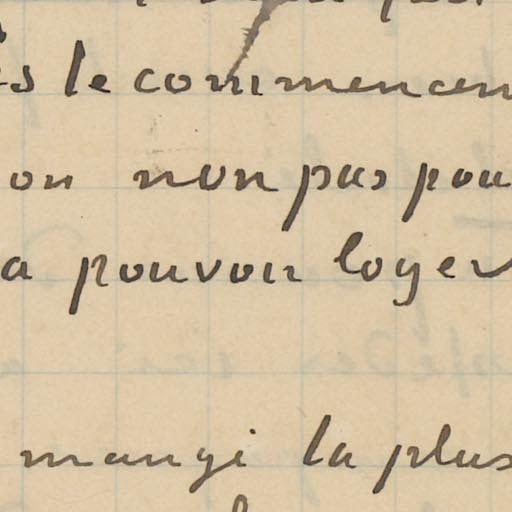 le commencem
on non pas pou
a pouvoir loger
mangi la plus